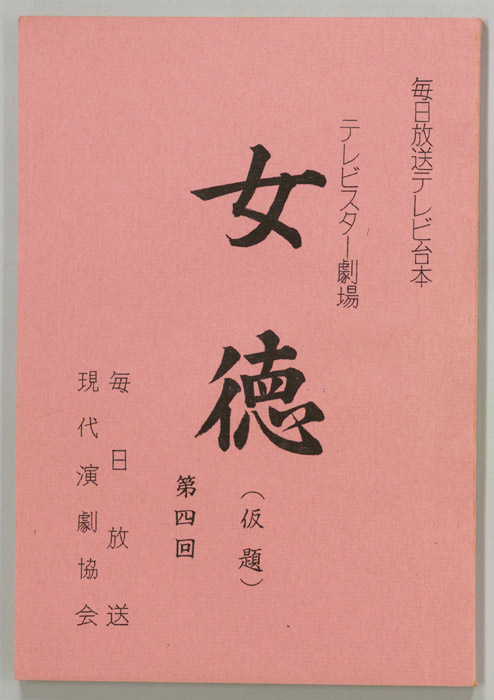 毎日放送テレビ台本
テレビスター劇場
女徳
（仮題）
第四回
毎日放送
現代演劇協会